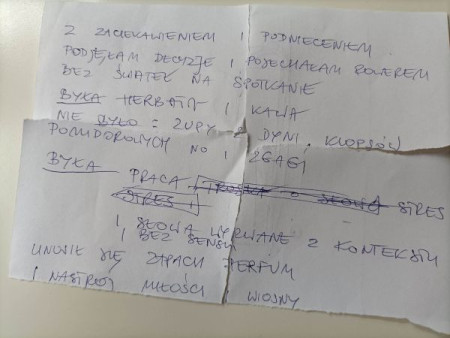 Z ZACIEKAWIENIEM I PODNIECENIEM
PODJĘŁAM DECYZJĘ I POJECHAŁAM ROWEREM
BEZ ŚWIATEŁ NA SPOTKANIE
BYŁA HERBATA I KAWA
NIE BYŁO = ZUPY Z DYNI, KLOPSÓW
POMIDOROWYCH NO I ZGAGI
BYŁA PRACA STRES
STRES I
I SŁOWA WYRWANE Z KONTEKSTU
I BEZ SENSU
UNOSIŁ SIĘ ZAPACH PERFUM
I NASTRÓJ MIŁOŚCI WIOSNY